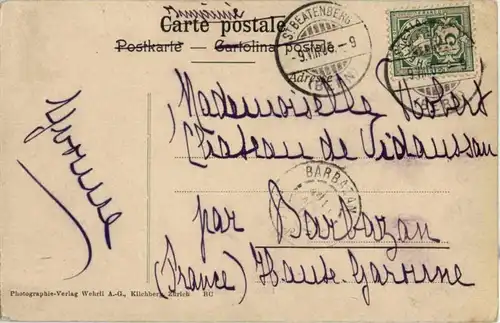 Imprimé
Carte postale
Postkarte — Cartolina postale
ST BEATENBERG
-9
(BERN)
Adresse
Mademoiselle Robert
Château de Vidaussan
BARBAZAN
par Barbazan
(France) Haute Garonne
Yvonne
Photographie-Verlag Wehrli A.-G., Kilchberg, Zürich BC